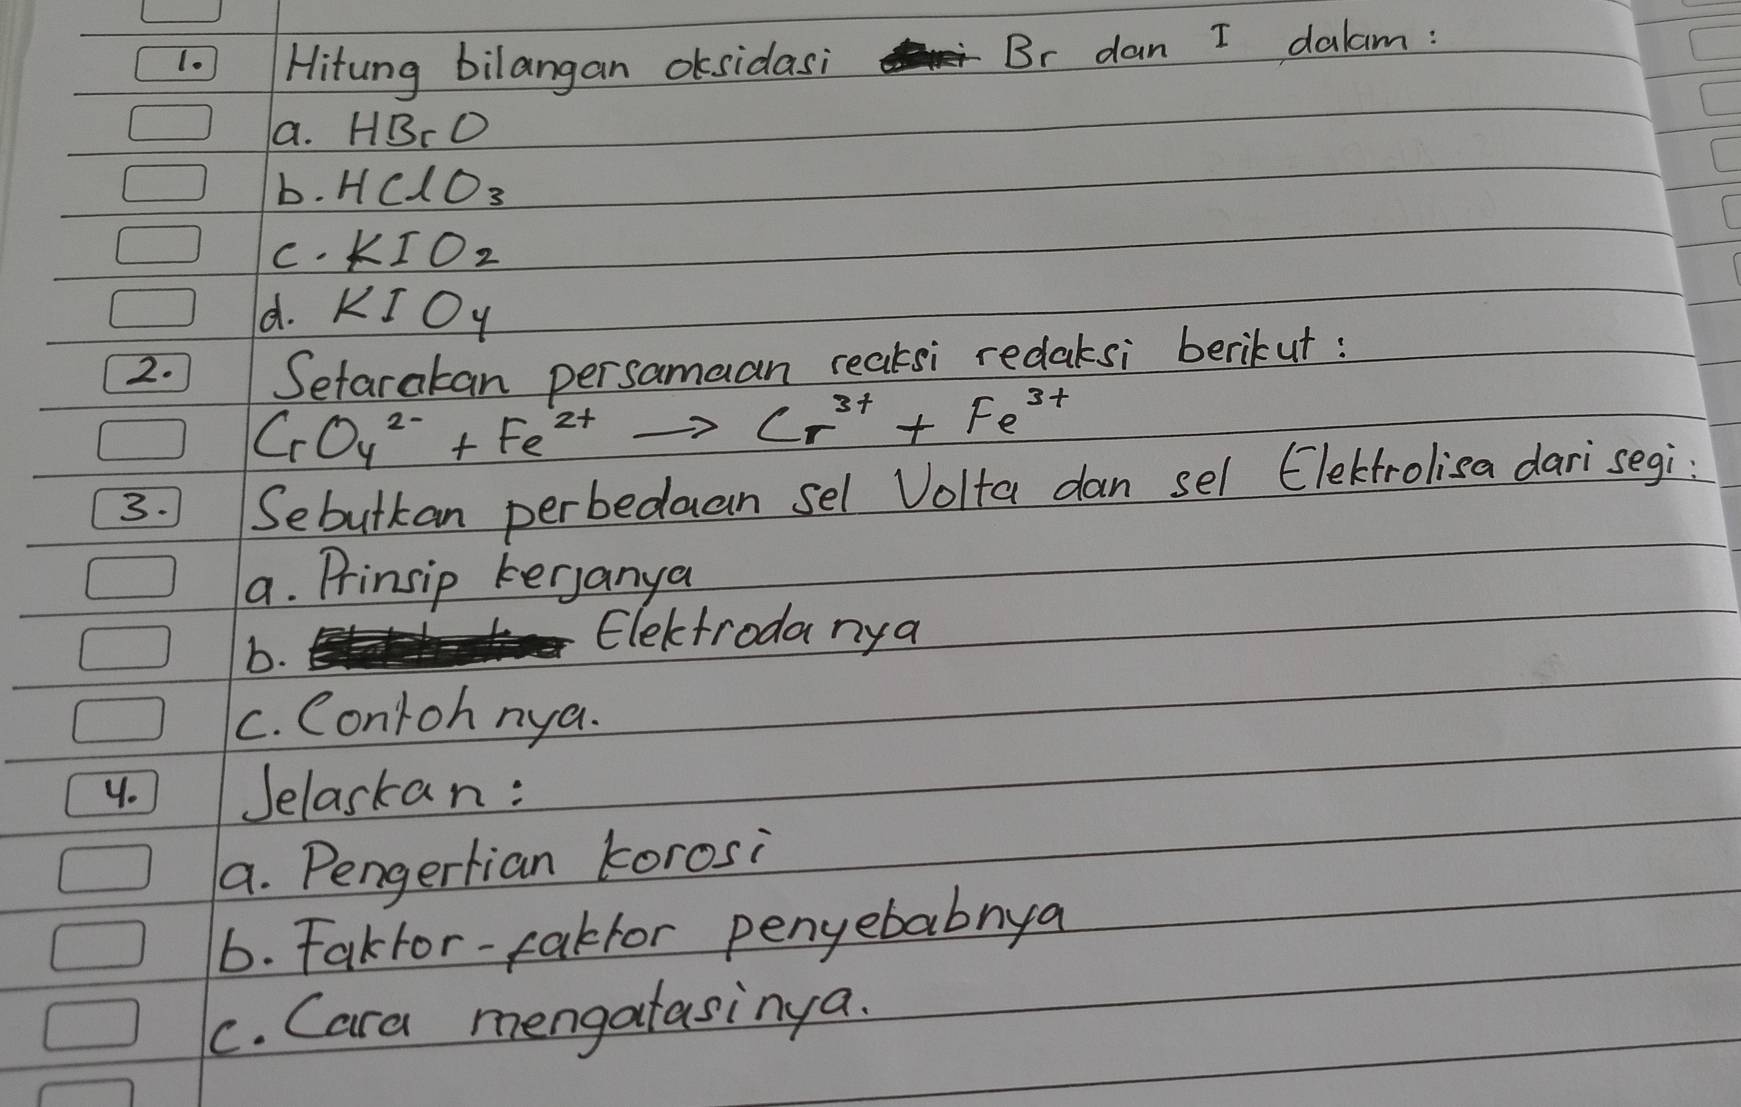 1. Hitung bilangan oksidasi Br dan I dalam:
a. HBrO
b. HClO₃
c. KIO₂
d. KIO₄
2. Setarakan persamaan reaksi redaksi berikut:
CrO₄²⁻ + Fe²⁺ → Cr³⁺ + Fe³⁺
3. Sebutkan perbedaan sel Volta dan sel Elektrolisa dari segi:
a. Prinsip kerjanya
b. Elektroda nya
c. Contoh nya.
4. Jelaskan:
a. Pengertian korosi
b. Faktor-faktor penyebabnya
c. Cara mengatasinya.